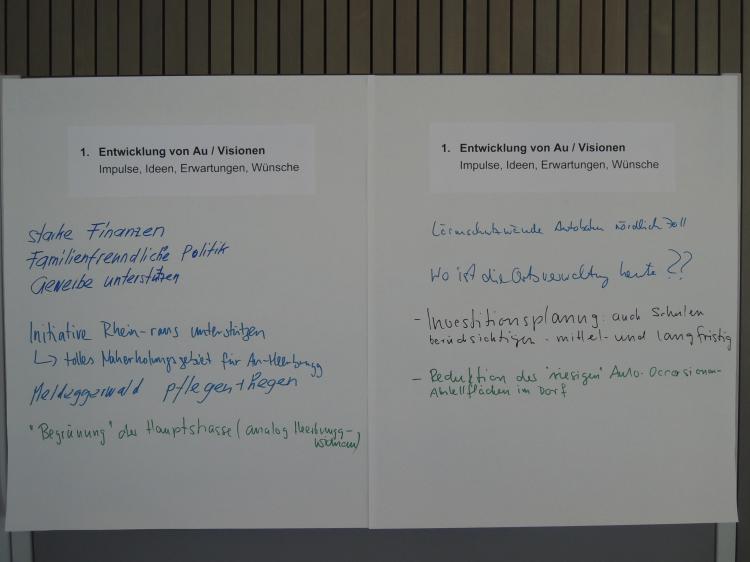 1. Entwicklung von Au / Visionen
Impulse, Ideen, Erwartungen, Wünsche
starke Finanzen
Familienfreundliche Politik
Gewerbe unterstützen
Initiative Rhein-raus unterstützen
↳ tolles Naherholungsgebiet für Au-Heerbrugg
Meldeggerwald pflegen + hegen
"Begrünung" der Hauptstrasse (analog Heerbrugg-
Widnau)
1. Entwicklung von Au / Visionen
Impulse, Ideen, Erwartungen, Wünsche
Lärmschutzwände Autobahn nördlich Zoll
Wo ist die Ortsverwaltung heute ??
- Investitionsplanung: auch Schulen
berücksichtigen - mittel- und langfristig
- Reduktion des "riesigen" Auto-Occasionen-
Abstellflächen im Dorf